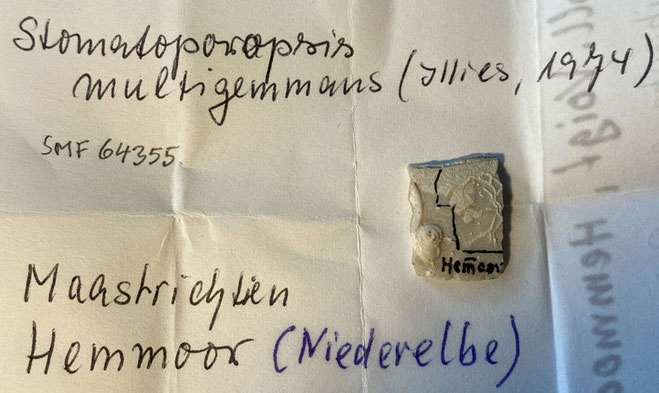 Stomatoporopsis
multigemmans (Illies, 1974)
SMF 64355.
Hemoor
Maastrichtien
Hemmoor (Niederelbe)
Voigt, Hemmoo